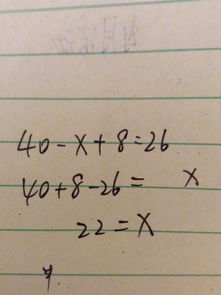 40-x+8=26
40+8-26= x
22=x